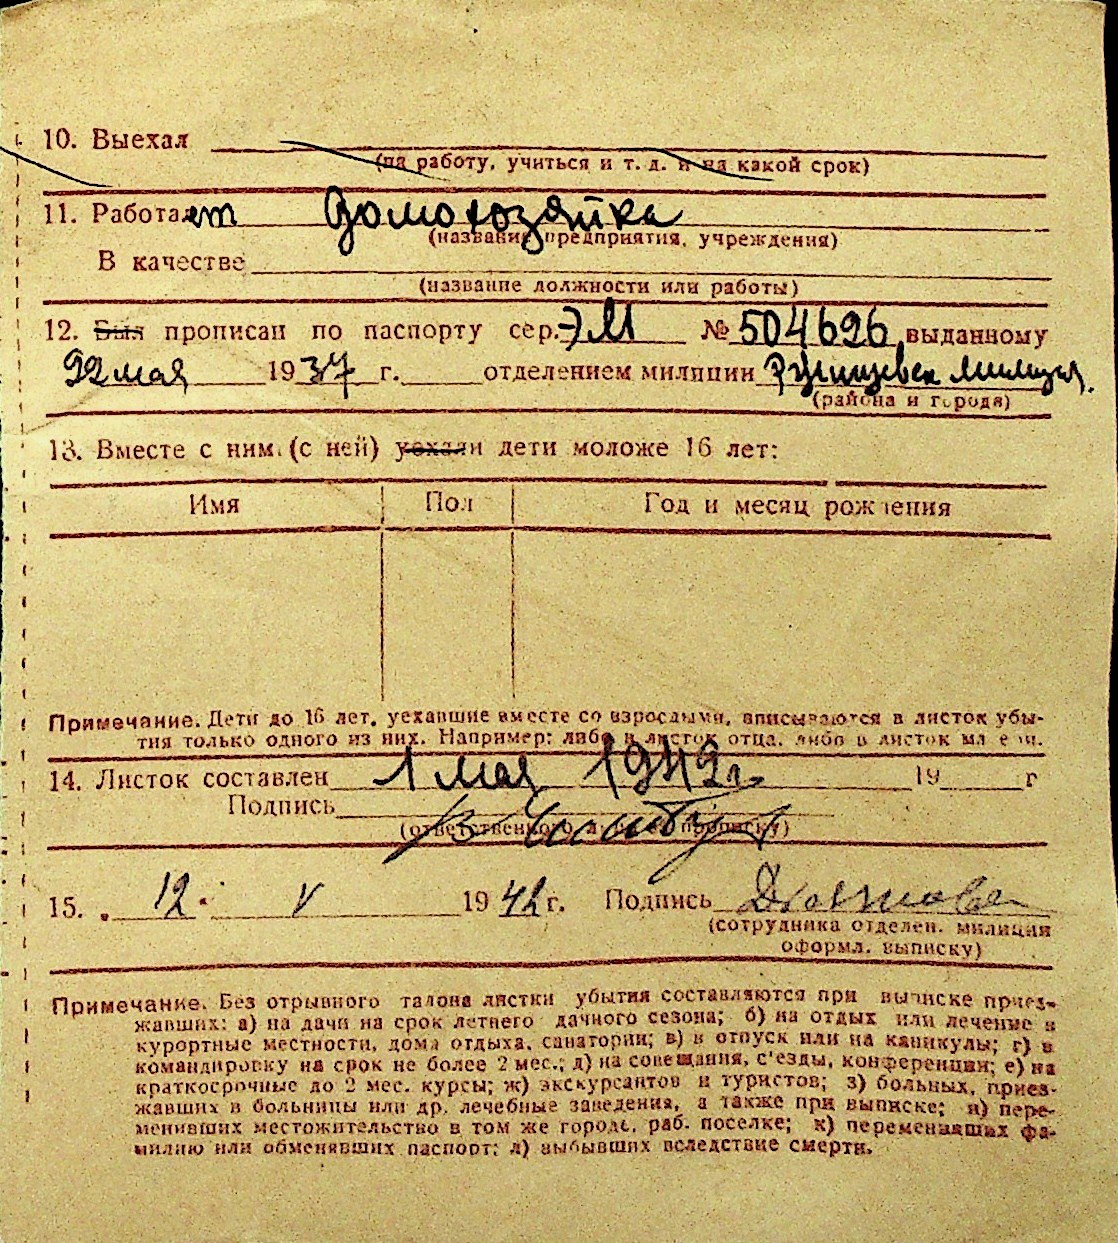 10. Выехал
(на работу, учиться и т. д. и на какой срок)
11. Работает домохозяйка
(название предприятия, учреждения)
В качестве
(название должности или работы)
12. Был прописан по паспорту сер. ЭМ № 504696 выданному
22 мая 1937 г. отделением милиции
(района и города)
13. Вместе с ним (с ней) уехали дети моложе 16 лет:
Имя Пол Год и месяц рождения
Примечание. Дети до 16 лет, уехавшие вместе со взрослыми, вписываются в листок убы-
тия только одного из них. Например: либо в листок отца, либо в листок матери.
14. Листок составлен 1 мая 1942 г. 19 г
Подпись
(ответственного за прописку)
15. 12. V 1942 г. Подпись
(сотрудника отделен. милиции
оформл. выписку)
Примечание. Без отрывного талона листки убытия составляются при выписке приез-
жавших: а) на дачи на срок летнего дачного сезона; б) на отдых или лечение в
курортные местности, дома отдыха, санатории; в) в отпуск или на каникулы; г) в
командировку на срок не более 2 мес.; д) на совещания, с'езды, конференции; е) на
краткосрочные до 2 мес. курсы; ж) экскурсантов и туристов; з) больных, приез-
жавших в больницы или др. лечебные заведения, а также при выписке; и) пере-
менивших местожительство в том же городе, раб. поселке; к) переменивших фа-
милию или обменявших паспорт; л) выбывших вследствие смерти.